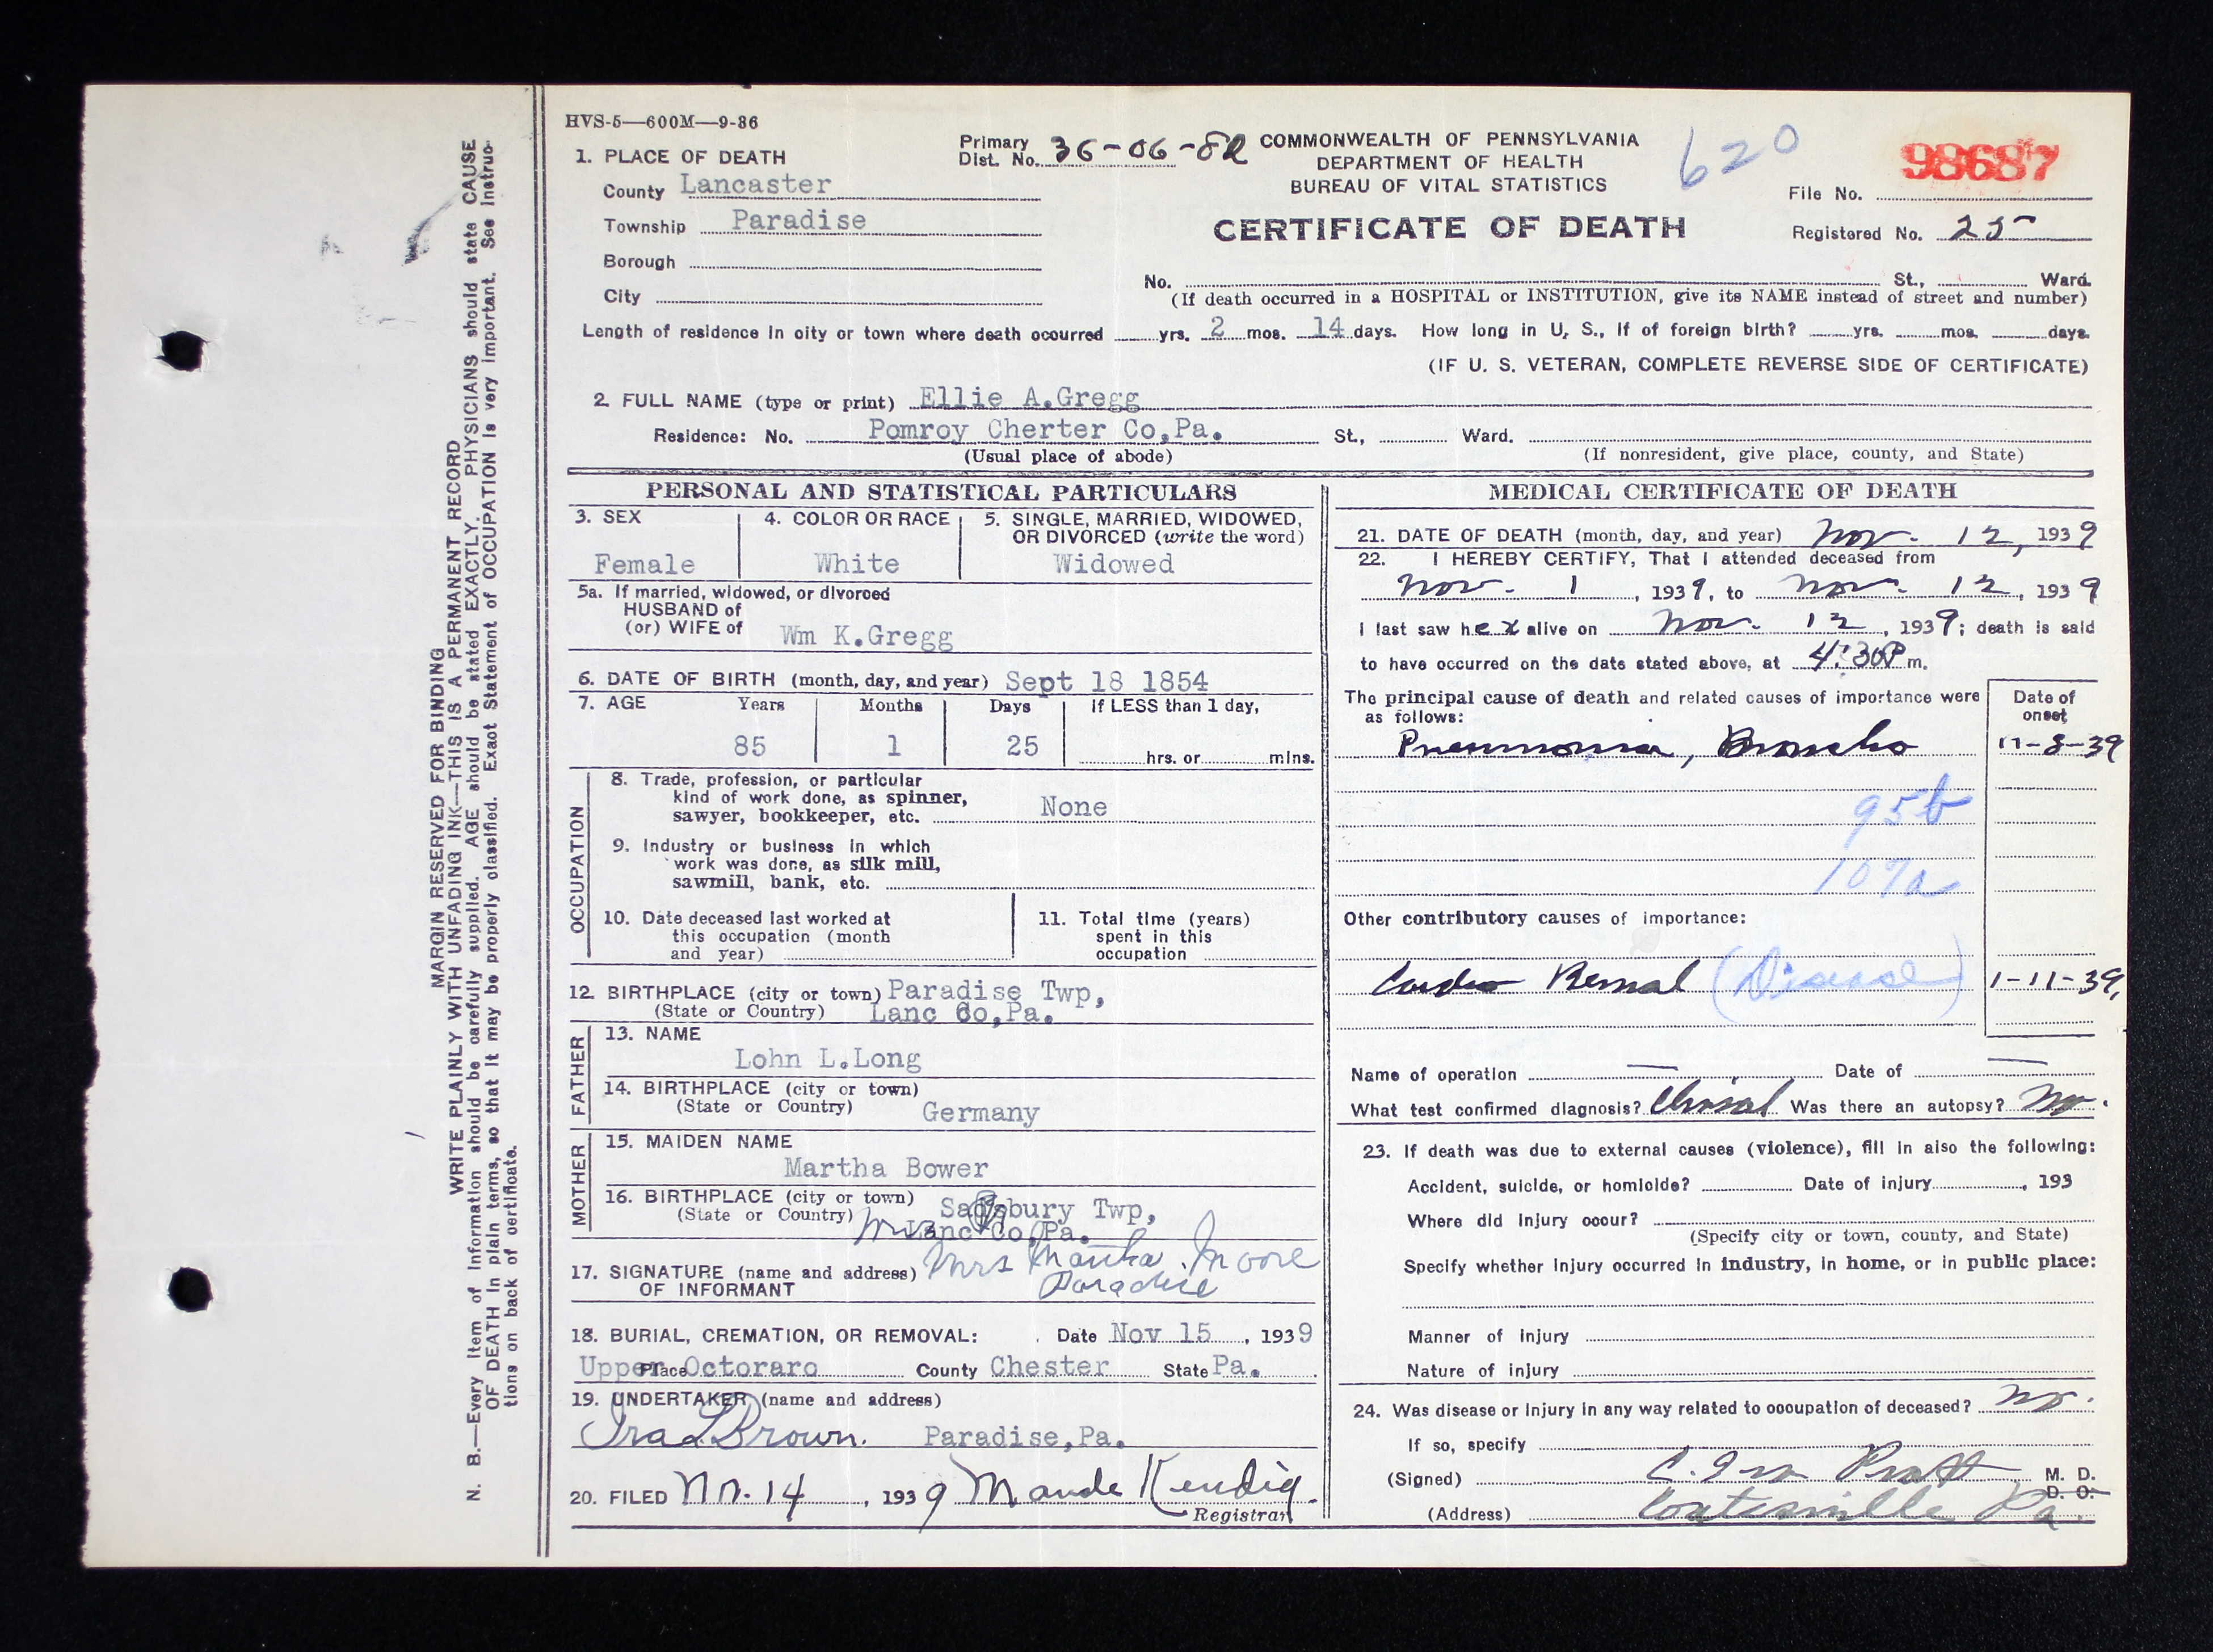 HVS-5—600M—9-36
1. PLACE OF DEATH
County Lancaster
Township Paradise
Borough
City
Primary
Dist. No. 36-06-82
COMMONWEALTH OF PENNSYLVANIA
DEPARTMENT OF HEALTH
BUREAU OF VITAL STATISTICS
CERTIFICATE OF DEATH
620
98687
File No.
Registered No. 25
No. St., Ward.
(If death occurred in a HOSPITAL or INSTITUTION, give its NAME instead of street and number)
Length of residence in city or town where death occurred yrs. 2 mos. 14 days. How long in U. S., if of foreign birth? yrs. mos. days.
(IF U. S. VETERAN, COMPLETE REVERSE SIDE OF CERTIFICATE)
2. FULL NAME (type or print) Ellie A.Gregg
Residence: No. Pomroy Cherter Co,Pa. St., Ward.
(Usual place of abode) (If nonresident, give place, county, and State)
PERSONAL AND STATISTICAL PARTICULARS
3. SEX
Female
4. COLOR OR RACE
White
5. SINGLE, MARRIED, WIDOWED,
OR DIVORCED (write the word)
Widowed
5a. If married, widowed, or divorced
HUSBAND of
(or) WIFE of Wm K.Gregg
6. DATE OF BIRTH (month, day, and year) Sept 18 1854
7. AGE Years Months Days If LESS than 1 day,
85 1 25 hrs. or mins.
OCCUPATION
8. Trade, profession, or particular
kind of work done, as spinner,
sawyer, bookkeeper, etc. None
9. Industry or business in which
work was done, as silk mill,
sawmill, bank, etc.
10. Date deceased last worked at
this occupation (month
and year)
11. Total time (years)
spent in this
occupation
12. BIRTHPLACE (city or town) Paradise Twp,
(State or Country) Lanc Co,Pa.
FATHER
13. NAME
Lohn L.Long
14. BIRTHPLACE (city or town)
(State or Country) Germany
MOTHER
15. MAIDEN NAME
Martha Bower
16. BIRTHPLACE (city or town) Sadsbury Twp,
(State or Country) Lanc Co,Pa.
17. SIGNATURE (name and address) Mrs Martha Moore
OF INFORMANT Paradise
18. BURIAL, CREMATION, OR REMOVAL: Date Nov 15, 1939
Place Upper Octoraro County Chester State Pa.
19. UNDERTAKER (name and address)
Ira L Brown. Paradise,Pa.
20. FILED Nov. 14, 1939 Maude Kendig.
Registrar
MEDICAL CERTIFICATE OF DEATH
21. DATE OF DEATH (month, day, and year) Nov. 12, 1939
22. I HEREBY CERTIFY, That I attended deceased from
Nov. 1, 1939, to Nov. 12, 1939
I last saw her alive on Nov. 12, 1939; death is said
to have occurred on the date stated above, at 4:30P m.
The principal cause of death and related causes of importance were
as follows:
Date of
onset
Pneumonia, Broncho 11-8-39
95b
107a
Other contributory causes of importance:
Cardio Renal (Disease) 1-11-39
Name of operation — Date of —
What test confirmed diagnosis? Clinical Was there an autopsy? No.
23. If death was due to external causes (violence), fill in also the following:
Accident, suicide, or homicide? Date of injury , 193
Where did injury occur?
(Specify city or town, county, and State)
Specify whether injury occurred in industry, in home, or in public place:
Manner of injury
Nature of injury
24. Was disease or injury in any way related to occupation of deceased? No.
If so, specify
(Signed) C. Ira Pratt M. D.
D. O.
(Address) Coatesville Pa.
MARGIN RESERVED FOR BINDING
WRITE PLAINLY WITH UNFADING INK—THIS IS A PERMANENT RECORD
N. B.—Every item of information should be carefully supplied. AGE should be stated EXACTLY. PHYSICIANS should state CAUSE
OF DEATH in plain terms, so that it may be properly classified. Exact Statement of OCCUPATION is very important. See instruc-
tions on back of certificate.